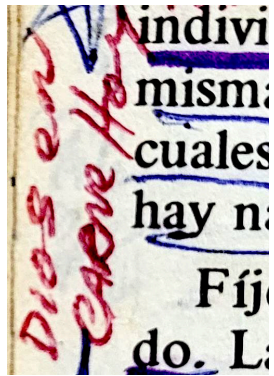 Dios en
carne Hoy
indivi
misma
cuales
hay na
Fíje
do. La